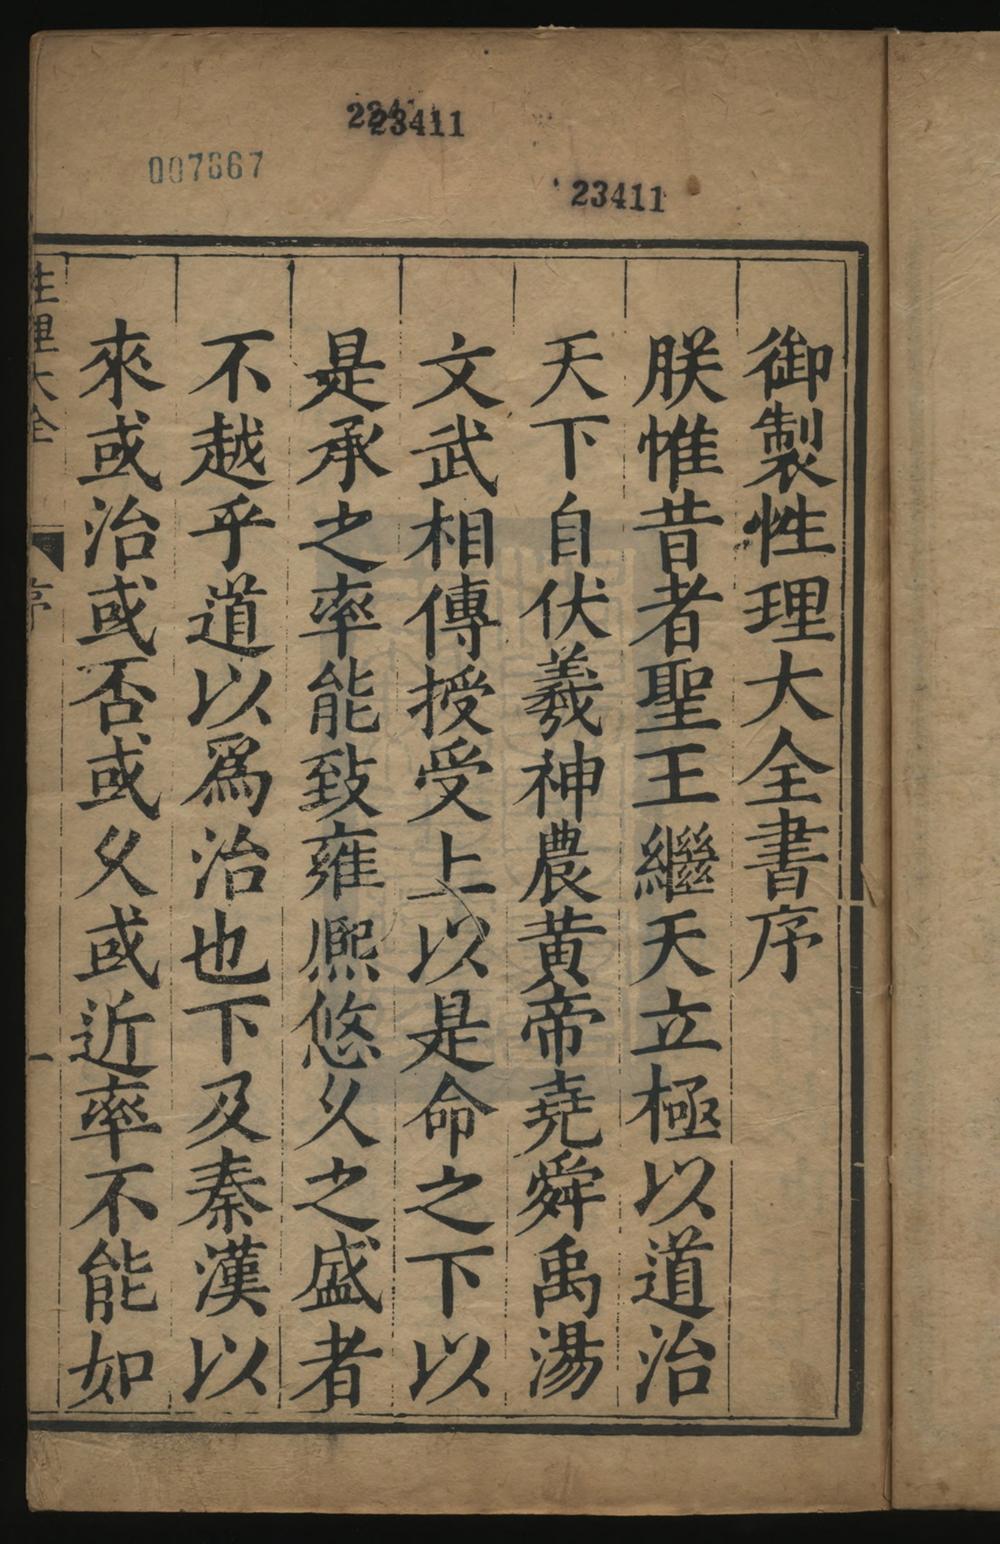 23411
007667
23411
御製性理大全書序
朕惟昔者聖王繼天立極以道治
天下自伏羲神農黃帝堯舜禹湯
文武相傳授受上以是命之下以
是承之率能致雍熈悠久之盛者
不越乎道以爲治也下及秦漢以
來或治或否或久或近率不能如
性理大全
序
一